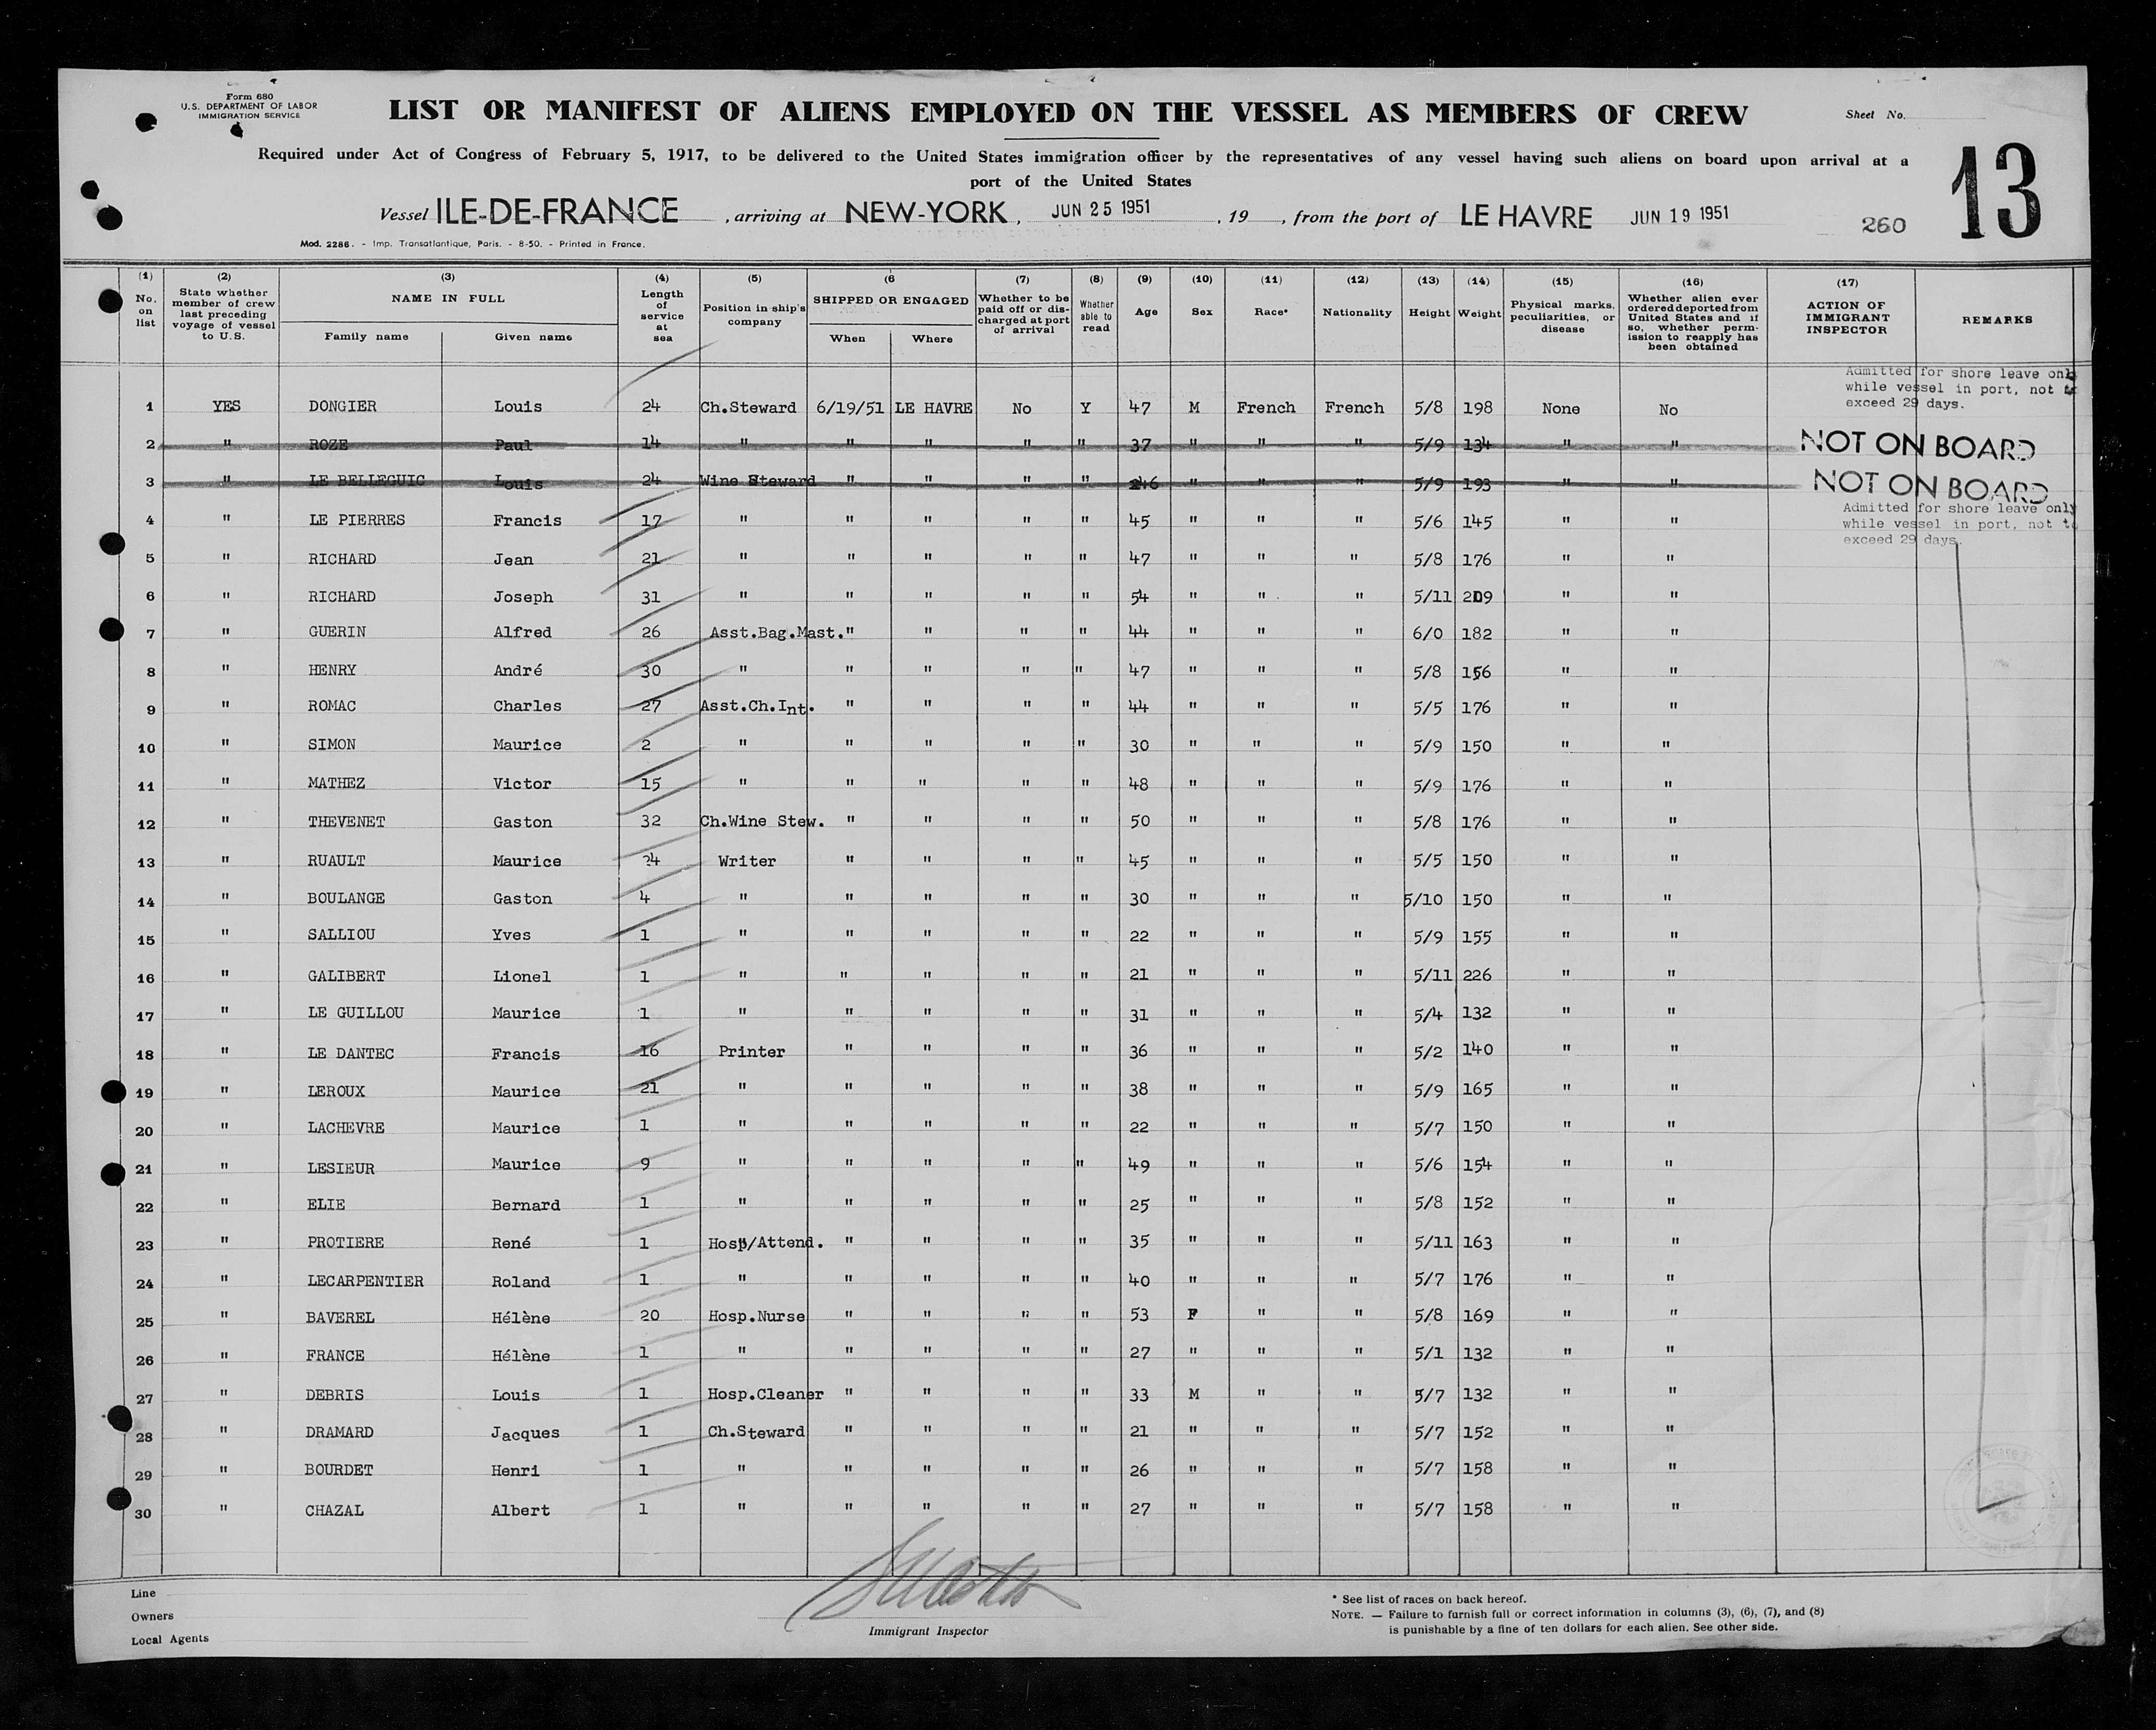 Form 680
U.S. DEPARTMENT OF LABOR
IMMIGRATION SERVICE
LIST OR MANIFEST OF ALIENS EMPLOYED ON THE VESSEL AS MEMBERS OF CREW
Sheet No.
13
Required under Act of Congress of February 5, 1917, to be delivered to the United States immigration officer by the representatives of any vessel having such aliens on board upon arrival at a
port of the United States
Vessel ILE-DE-FRANCE, arriving at NEW-YORK, JUN 25 1951, 19 , from the port of LE HAVRE JUN 19 1951 260
Mod. 2286. - Imp. Transatlantique, Paris. - 8-50. - Printed in France.
(1) No. on list
(2) State whether member of crew last preceding voyage of vessel to U.S.
(3) NAME IN FULL Family name Given name
(4) Length of service at sea
(5) Position in ship's company
(6 SHIPPED OR ENGAGED When Where
(7) Whether to be paid off or discharged at port of arrival
(8) Whether able to read
(9) Age
(10) Sex
(11) Race*
(12) Nationality
(13) Height
(14) Weight
(15) Physical marks, peculiarities, or disease
(16) Whether alien ever ordered deported from United States and if so, whether permission to reapply has been obtained
(17) ACTION OF IMMIGRANT INSPECTOR
REMARKS
Admitted for shore leave only
while vessel in port, not to
exceed 29 days.
1 YES DONGIER Louis 24 Ch.Steward 6/19/51 LE HAVRE No Y 47 M French French 5/8 198 None No
2 " ROZE Paul 14 " " " " " 37 " " " 5/9 134 " " NOT ON BOARD
3 " LE BELLEGUIC Louis 24 Wine Steward " " " " 46 " " " 5/9 193 " " NOT ON BOARD
Admitted for shore leave only
while vessel in port, not to
exceed 29 days.
4 " LE PIERRES Francis 17 " " " " " 45 " " " 5/6 145 " "
5 " RICHARD Jean 21 " " " " " 47 " " " 5/8 176 " "
6 " RICHARD Joseph 31 " " " " " 54 " " " 5/11 209 " "
7 " GUERIN Alfred 26 Asst.Bag.Mast. " " " " 44 " " " 6/0 182 " "
8 " HENRY André 30 " " " " " 47 " " " 5/8 156 " "
9 " ROMAC Charles 27 Asst.Ch.Int. " " " " 44 " " " 5/5 176 " "
10 " SIMON Maurice 2 " " " " " 30 " " " 5/9 150 " "
11 " MATHEZ Victor 15 " " " " " 48 " " " 5/9 176 " "
12 " THEVENET Gaston 32 Ch.Wine Stew. " " " " 50 " " " 5/8 176 " "
13 " RUAULT Maurice 24 Writer " " " " 45 " " " 5/5 150 " "
14 " BOULANGE Gaston 4 " " " " " 30 " " " 5/10 150 " "
15 " SALLIOU Yves 1 " " " " " 22 " " " 5/9 155 " "
16 " GALIBERT Lionel 1 " " " " " 21 " " " 5/11 226 " "
17 " LE GUILLOU Maurice 1 " " " " " 31 " " " 5/4 132 " "
18 " LE DANTEC Francis 16 Printer " " " " 36 " " " 5/2 140 " "
19 " LEROUX Maurice 21 " " " " " 38 " " " 5/9 165 " "
20 " LACHEVRE Maurice 1 " " " " " 22 " " " 5/7 150 " "
21 " LESIEUR Maurice 9 " " " " " 49 " " " 5/6 154 " "
22 " ELIE Bernard 1 " " " " " 25 " " " 5/8 152 " "
23 " PROTIERE René 1 Hosp/Attend. " " " " 35 " " " 5/11 163 " "
24 " LECARPENTIER Roland 1 " " " " " 40 " " " 5/7 176 " "
25 " BAVEREL Hélène 20 Hosp.Nurse " " " " 53 F " " 5/8 169 " "
26 " FRANCE Hélène 1 " " " " " 27 " " " 5/1 132 " "
27 " DEBRIS Louis 1 Hosp.Cleaner " " " " 33 M " " 5/7 132 " "
28 " DRAMARD Jacques 1 Ch.Steward " " " " 21 " " " 5/7 152 " "
29 " BOURDET Henri 1 " " " " " 26 " " " 5/7 158 " "
30 " CHAZAL Albert 1 " " " " " 27 " " " 5/7 158 " "
Line
Owners
Local Agents
Immigrant Inspector
* See list of races on back hereof.
NOTE. — Failure to furnish full or correct information in columns (3), (6), (7), and (8)
is punishable by a fine of ten dollars for each alien. See other side.